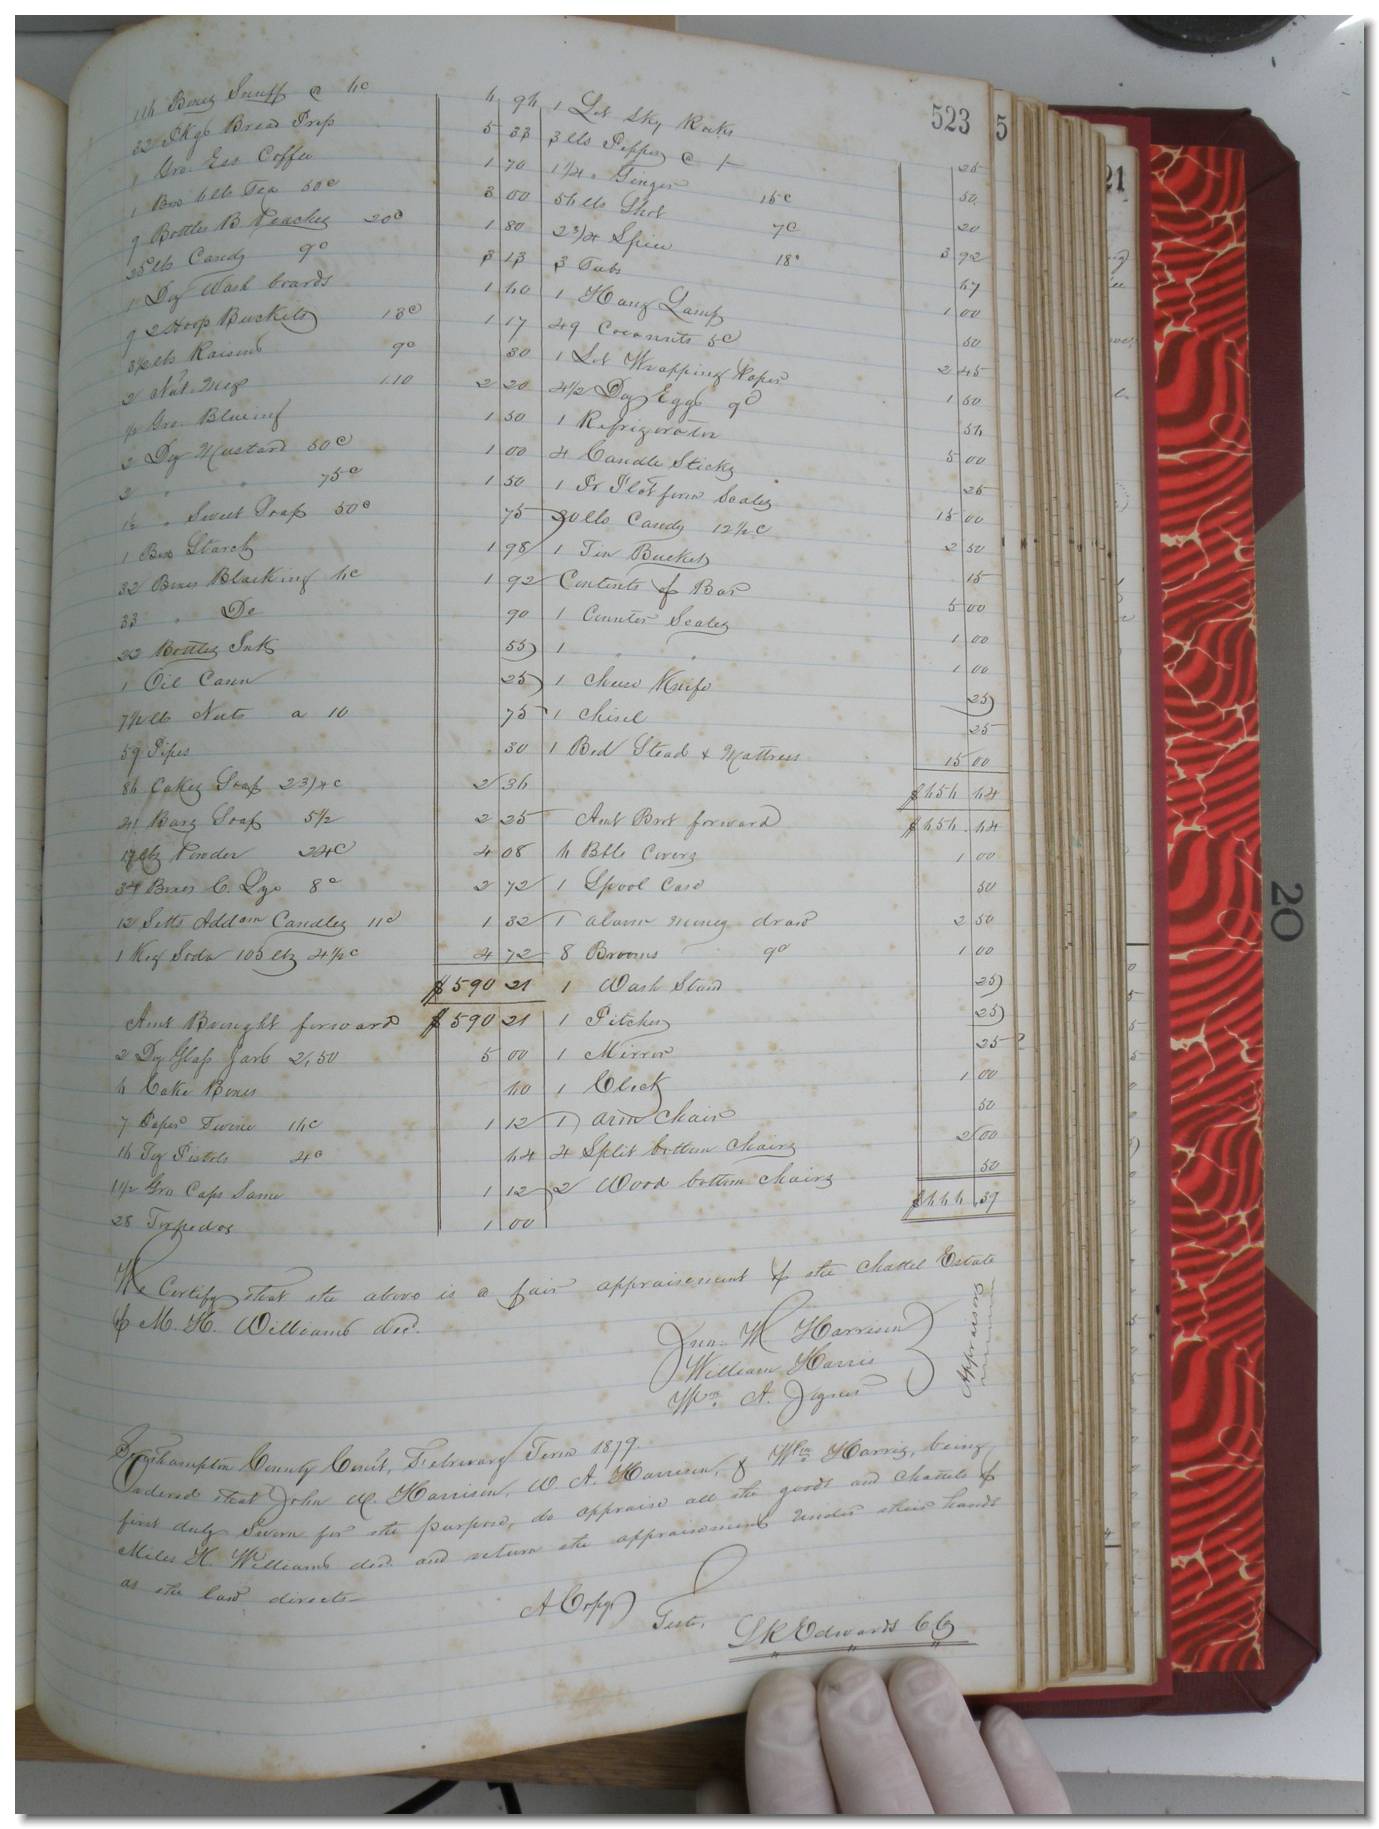 523
116 Boxes Snuff @ 6c 6 96
32 Pkgs Bread Prep 5 33
1 Gro. Ess Coffee 1 70
1 Box 6 lbs Tea 50c 3 00
9 Bottles B. Peaches 20c 1 80
25 lbs Candy 9c 3 13
1 Doz Wash boards 1 60
9 2 Hoop Buckets 13c 1 17
3½ lbs Raisins 9c 30
2 Nut Megs 1.10 2 20
½ Gro. Blueing 1 50
2 Doz Mustard 50c 1 00
2 " " 75c 1 50
1½ " Sweet Soap 50c 75
1 Box Starch 1 98
32 Boxes Blacking 6c 1 92
33 " Do 90
22 Bottles Ink 55
1 Oil Cann 25
7½ lbs Nuts a 10 75
59 Pipes 30
86 Cakes Soap 2 3/4c 2 36
41 Bars Soap 5½ 2 25
17 lbs Powder 24c 4 08
34 Boxes C. Lye 8c 2 72
12 Setts Addam Candles 11c 1 32
1 Keg Soda 105 lbs 4½c 4 72
$590 21
Amt Brought forward $590 21
2 Doz Glass Jars 2,50 5 00
6 Cake Boxes 60
7 Papers Twine 16c 1 12
16 Toy Pistols 4c 64
11½ Gro Caps Same 1 12
28 Torpedos 1 00
1 Lot Sky Rocks 25
3 lbs Pepper @ 50
1¼ " Ginger 15c 20
56 lbs Shot 7c 3 92
2 3/4 Spice 18c 47
3 Tubs 1 00
1 Hang Lamp 50
49 Cocoanuts 5c 2 45
1 Lot Wrapping Paper 1 50
4½ Doz Eggs 9c 54
1 Refrigerator 5 00
4 Candle Sticks 25
1 Pr Platform Scales 15 00
20 lbs Candy 12½c 2 50
1 Tin Bucket 15
Contents of Bar 5 00
1 Counter Scales 1 00
1 " " 1 00
1 Cheese Knife 25
1 Chisel 25
1 Bed Stead & Mattress 15 00
$656 64
Amt Brot forward $656.64
6 Btls Covers 1 00
1 Spool Case 50
1 alarm money draw 2 50
8 Brooms 1 00
1 Wash Stand 25
1 Pitcher 25
1 Mirror 25
1 Clock 1 00
1 arm Chair 50
4 Split bottom Chairs 2 00
2 Wood bottom chairs 50
$666.39
We Certify that the above is a fair appraisement of the Chattel Estate
of M. H. Williams dec.
Jno. W Harrison
William Harris
Wm. A. Joyner
Appraisers
Southampton County Court, February Term 1879.
Ordered that John W. Harrison, W. A. Harrison, & Wm Harris, being
first duly Sworn for the purpose, do appraise all the goods and Chattels of
Miles H. Williams dec. and return the appraisement under their hands
as the law directs
A Copy
Teste,
L R Edwards CC
20